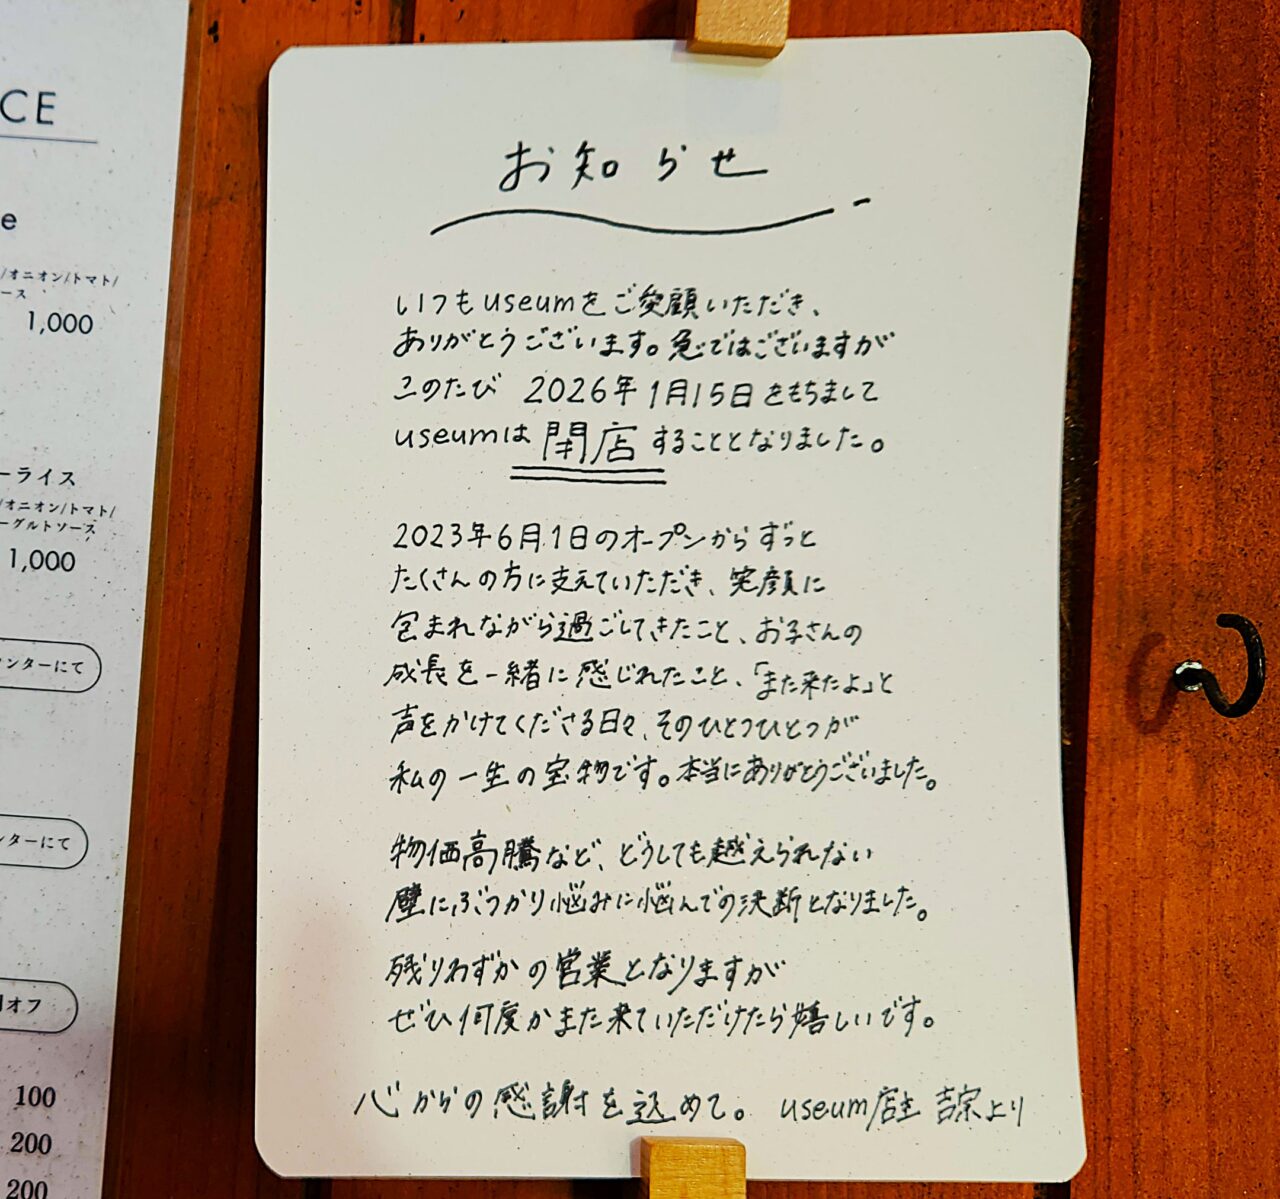 CE
e
/オニオン/トマト/
ース
1,000
ーライス
/オニオン/トマト/
ーグルトソース
1,000
ンターにて
ンターにて
オフ
100
200
200
お知らせ
いつもuseumをご愛顧いただき、
ありがとうございます。急ではございますが
このたび 2026年1月15日をもちまして
useumは閉店することとなりました。
2023年6月1日のオープンからずっと
たくさんの方に支えていただき、笑顔に
包まれながら過ごしてきたこと、お子さんの
成長を一緒に感じれたこと、「また来たよ」と
声をかけてくださる日々、そのひとつひとつが
私の一生の宝物です。本当にありがとうございました。
物価高騰など、どうしても越えられない
壁にぶつかり悩みに悩んでの決断となりました。
残りわずかの営業となりますが
ぜひ何度かまた来ていただけたら嬉しいです。
心からの感謝を込めて。 useum店主 吉宗より